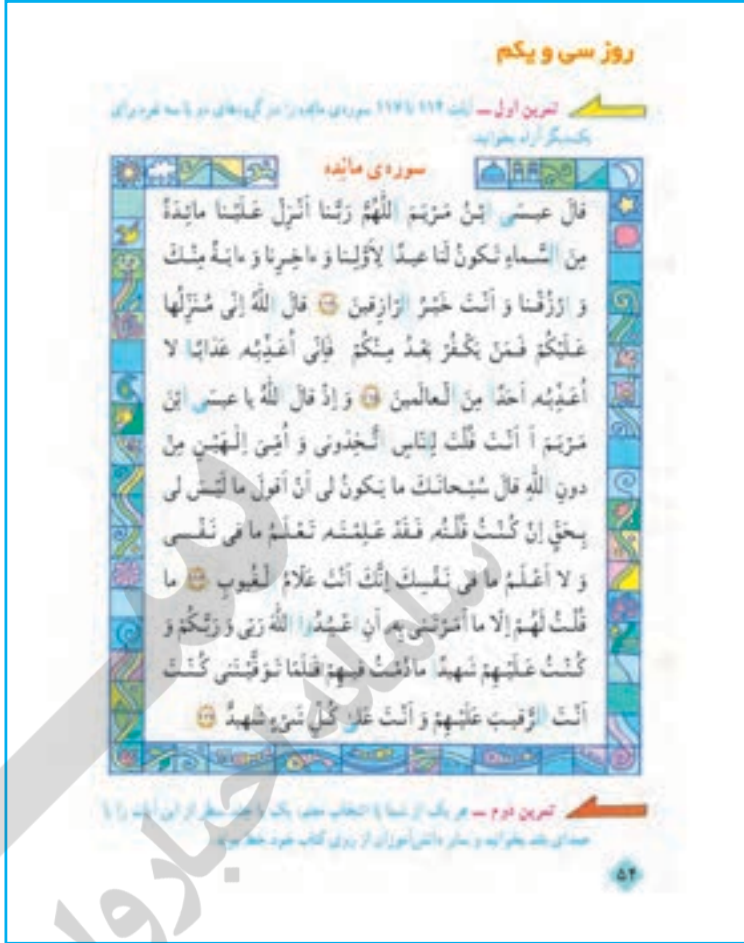 روز سی و یکم
تمرین اول ــ آیات ۱۱۴ تا ۱۱۷ سوره‌ی مائده را در گروه‌های دو یا سه نفره برای
یکدیگر آرام بخوانید.
سوره‌ی مائده
قالَ عیسَی ابْنُ مَرْیَمَ اللّٰهُمَّ رَبَّنا اَنْزِلْ عَلَیْنا مائِدَةً
مِنَ السَّماءِ تَکونُ لَنا عیدًا لِاَوَّلِنا وَ ءاخِرِنا وَ ءایَةً مِنْكَ
وَ ارْزُقْنا وَ اَنْتَ خَیْرُ الرّازِقینَ ۱۱۴ قالَ اللّٰهُ اِنّی مُنَزِّلُها
عَلَیْکُمْ فَمَنْ یَکْفُرْ بَعْدُ مِنْکُمْ فَاِنّی اُعَذِّبُهُ عَذابًا لا
اُعَذِّبُهُ اَحَدًا مِنَ الْعالَمینَ ۱۱۵ وَ اِذْ قالَ اللّٰهُ یا عیسَی ابْنَ
مَرْیَمَ أَ اَنْتَ قُلْتَ لِلنّاسِ اتَّخِذونی وَ اُمِّیَ اِلٰهَیْنِ مِنْ
دونِ اللّٰهِ قالَ سُبْحانَكَ ما یَکونُ لی اَنْ اَقولَ ما لَیْسَ لی
بِحَقٍّ اِنْ کُنْتُ قُلْتُهُ فَقَدْ عَلِمْتَهُ تَعْلَمُ ما فی نَفْسی
وَ لا اَعْلَمُ ما فی نَفْسِكَ اِنَّكَ اَنْتَ عَلّامُ الْغُیوبِ ۱۱۶ ما
قُلْتُ لَهُمْ اِلّا ما اَمَرْتَنی بِهِ اَنِ اعْبُدُوا اللّٰهَ رَبّی وَ رَبَّکُمْ وَ
کُنْتُ عَلَیْهِمْ شَهیدًا مادُمْتُ فیهِمْ فَلَمّا تَوَفَّیْتَنی کُنْتَ
اَنْتَ الرَّقیبَ عَلَیْهِمْ وَ اَنْتَ عَلیٰ کُلِّ شَیْءٍ شَهیدٌ ۱۱۷
تمرین دوم ــ هر یک از شما با انتخاب معلم، یک یا چند سطر از این آیات را با
صدای بلند بخوانید و سایر دانش‌آموزان از روی کتاب خود خط ببرند.
۵۴